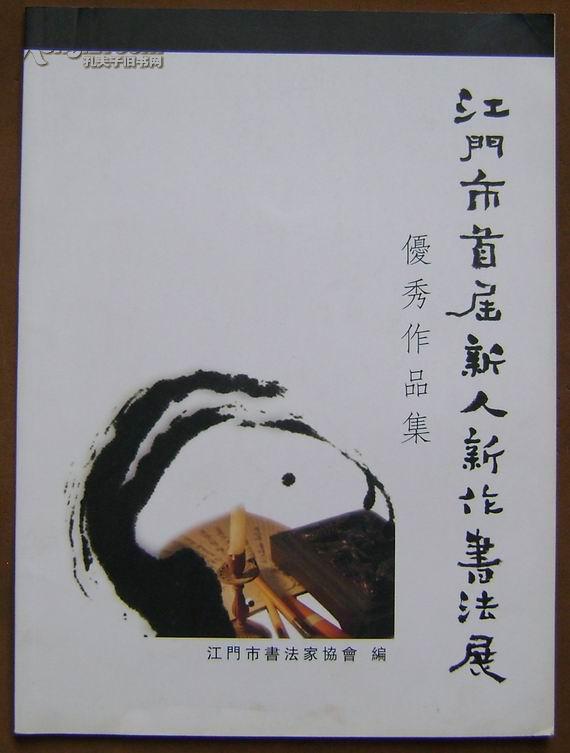 孔夫子旧书网
江門市首届新人新作書法展
優秀作品集
江門市書法家協會 編